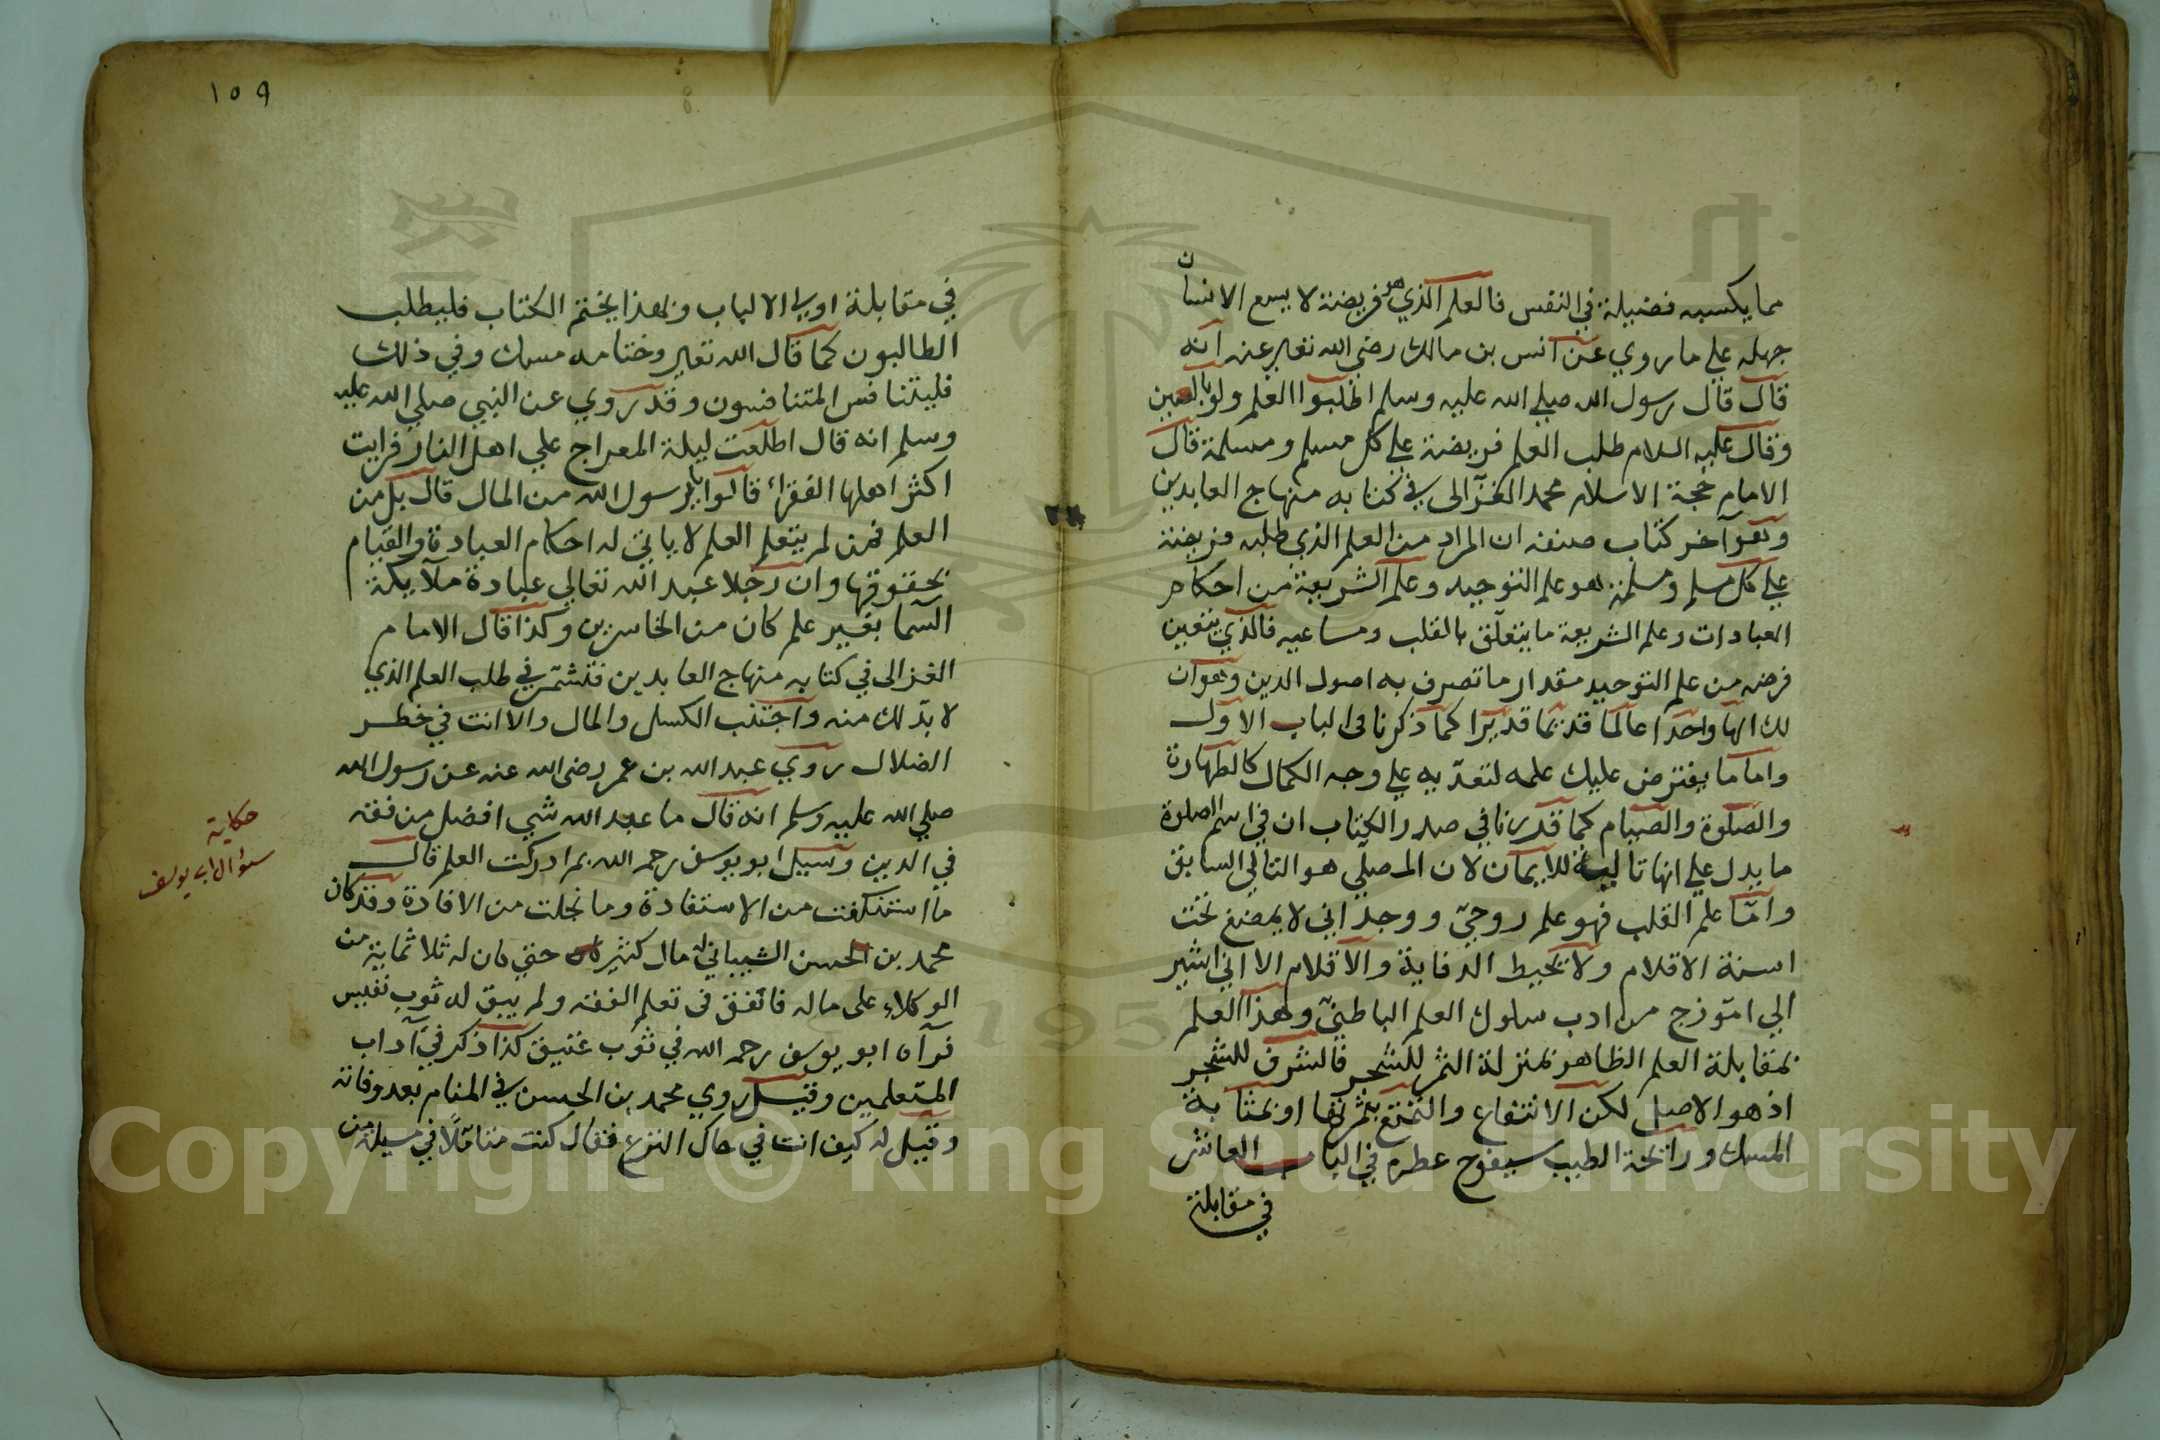 مما يكسبه فضيلة في النفس فالعلم الذي هو فريضة لا يسع الانسان
جهله علي ما روي عن انس بن مالك رضي الله تعالي عنه انه
قال قال رسول الله صلي الله عليه وسلم اطلبوا العلم ولو بالصين
وقال عليه السلام طلب العلم فريضة علي كل مسلم ومسلمة قال
الامام حجة الاسلام محمد الغزالي في كتابه منهاج العابدين
وهو آخر كتاب صنفه ان المراد من العلم الذي طلبه فريضة
علي كل مسلم ومسلمة هو علم التوحيد وعلم الشريعة من احكام
العبادات وعلم الشريعة ما يتعلق بالقلب ومساعيه فالذي يتعين
فرضه من علم التوحيد مقدار ما تصرف به اصول الدين وهو ان
لك الها واحدا عالما قديما قديرا كما ذكرنا في الباب الاول
واما ما يفترض عليك علمه لتعدّيه علي وجه الكمال كالطهارة
والصلوة والصيام كما قدرنا في صدر الكتاب ان في اسم الصلوة
ما يدل علي انها تالية للايمان لان المصلي هو التالي السابق
واما علم القلب فهو علم روحيّ ووجداني لا يمضغ تحت
اسنة الاقلام ولا يحيط الدفاية والاقلام الا اني اشير
الي امّوذج من ادب سلوك العلم الباطنيّ وهذا العلم
بمقابلة العلم الظاهر بمنزلة الثمر للشجر فالشرف للشجر
اذ هو الاصل لكن الانتفاع والتمتع بثمرتها او بمثابة
المسك ورائحة الطيب سيفوح عطره في الباب العاشر
في مقابلة
١٥٩
في مقابلة اولي الالباب وبهذا يختم الكتاب فليطلب
الطالبون كما قال الله تعالي وختامه مسك وفي ذلك
فليتنافس المتنافسون وقد روي عن النبي صلي الله عليه
وسلم انه قال اطلعت ليلة المعراج علي اهل النار فرايت
اكثر اهلها الفقراء قالوا يا رسول الله من المال قال بل من
العلم فمن لم يتعلم العلم لا ياتي له احكام العبادة والقيام
بحقوقها وان رجلا عبد الله تعالي عبادة ملآيكة
السما بغير علم كان من الخاسرين وكذا قال الامام
الغزالي في كتابه منهاج العابدين فتشمّر في طلب العلم الذي
لا بدّ لك منه واجتنب الكسل والمال والا انت في خطر
الضلال روي عبد الله بن عمر رضي الله عنه عن رسول الله
صلي الله عليه وسلم انه قال ما عبد الله شي افضل من فقه
في الدين وسيل ابو يوسف رحمه الله بم ادركت العلم قال
ما استنكفت من الاستفادة وما بخلت من الافادة وقد كان
محمد بن الحسن الشيباني له مال كثير حتي كان له ثلاثماية من
الوكلاء علي ماله فانفق في تعلم الفقه ولم يبق له ثوب نفيس
فرآه ابو يوسف رحمه الله في ثوب عتيق كذا ذكر في آداب
المتعلمين وقيل روي محمد بن الحسن في المنام بعد وفاته
وقيل له كيف انت في حال النزع فقال كنت متاملًا في مسيلة من
حكاية
سؤال ابي يوسف
Copyright © King Saud University
195